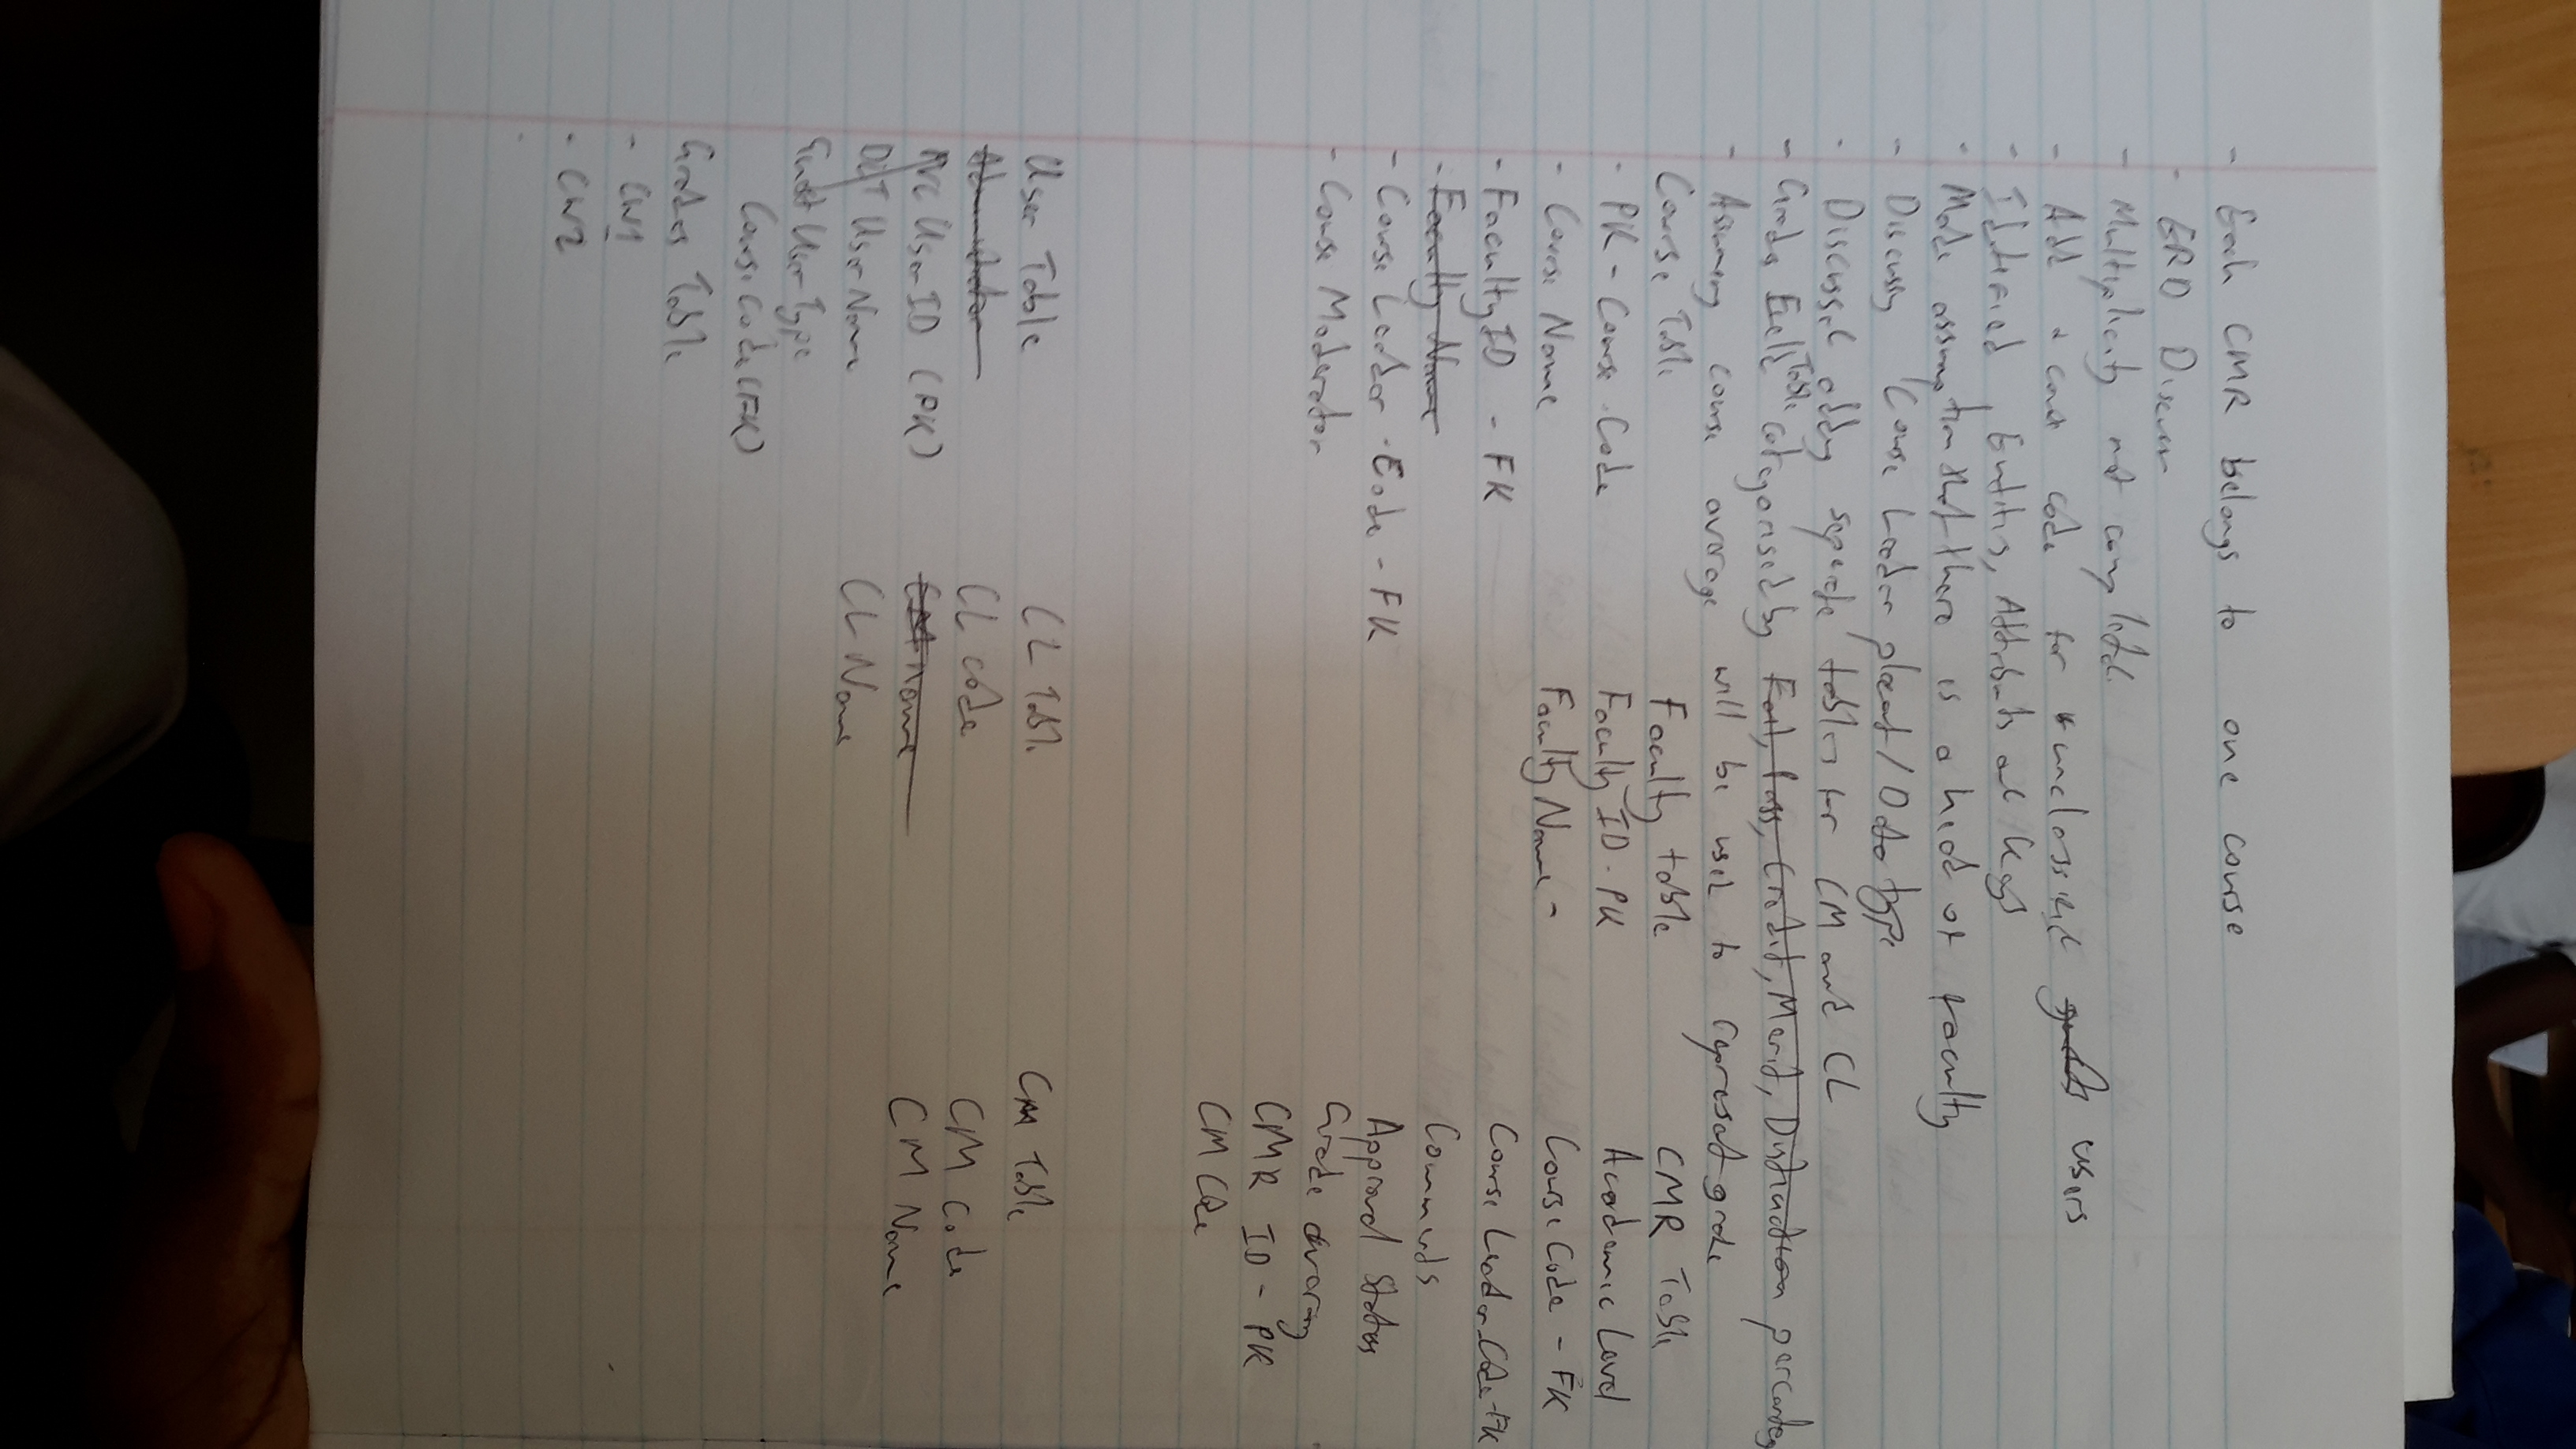 - Each CMR belongs to one course
- ERD Discussion
- Multiplicity not completed.
- Add a course code for unclassified guests users
- Identified Entities, Attributes and Keys
- Made assumption that there is a head of faculty
- Discussing Course Leader placement / Data type
- Discussed adding seperate tables for CM and CL
- Grades Table categorised by Fail, Pass, Credit, Merit, Distinction percentage
- Assuming course average will be used to represent grade
Course Table
- PK - Course Code
- Course Name
- FacultyID - FK
- Faculty Name
- Course Leader - Code - FK
- Course Moderator
Faculty table
Faculty ID - PK
Faculty Name -
CMR Table
Academic Level
Course Code - FK
Course Leader Code - FK
Comments
Approval Status
Grade average
CMR ID - PK
CM Code
User Table
Administrator
PVC UserID (PK)
DLT User Name
Guest User Type
Course Code (FK)
CL Table
CL code
CM name
CL Name
CM Table
CM Code
CM Name
Grades Table
- CW1
- CW2
-